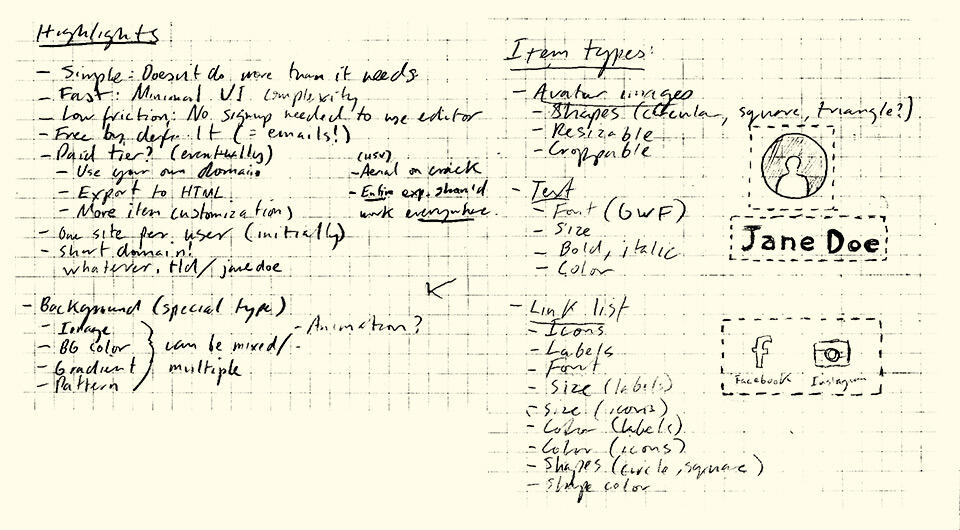 Highlights
- Simple: Doesn't do more than it needs
- Fast: Minimal UI complexity
- Low friction: No signup needed to use editor
- Free by default (= emails!)
- Paid tier? (eventually)
- Use your own domain
- Export to HTML
- More item customization)
- One site per user (initially)
- Short domain!
whatever.tld/janedoe
(usv)
- Aerial on crack
- Entire exp. should
work everywhere.
- Background (special type)
- Image
- BG color
- Gradient
- Pattern
can be mixed/
multiple
- Animation?
Item types:
- Avatar images
- Shapes (circular, square, triangle?)
- Resizable
- Croppable
- Text
- Font (GWF)
- Size
- Bold, italic
- Color
Jane Doe
- Link list
- Icons
- Labels
- Font
- Size (labels)
- Size (icons)
- Color (labels)
- Color (icons)
- Shapes (circle, square)
- Shape color
Facebook Instagram